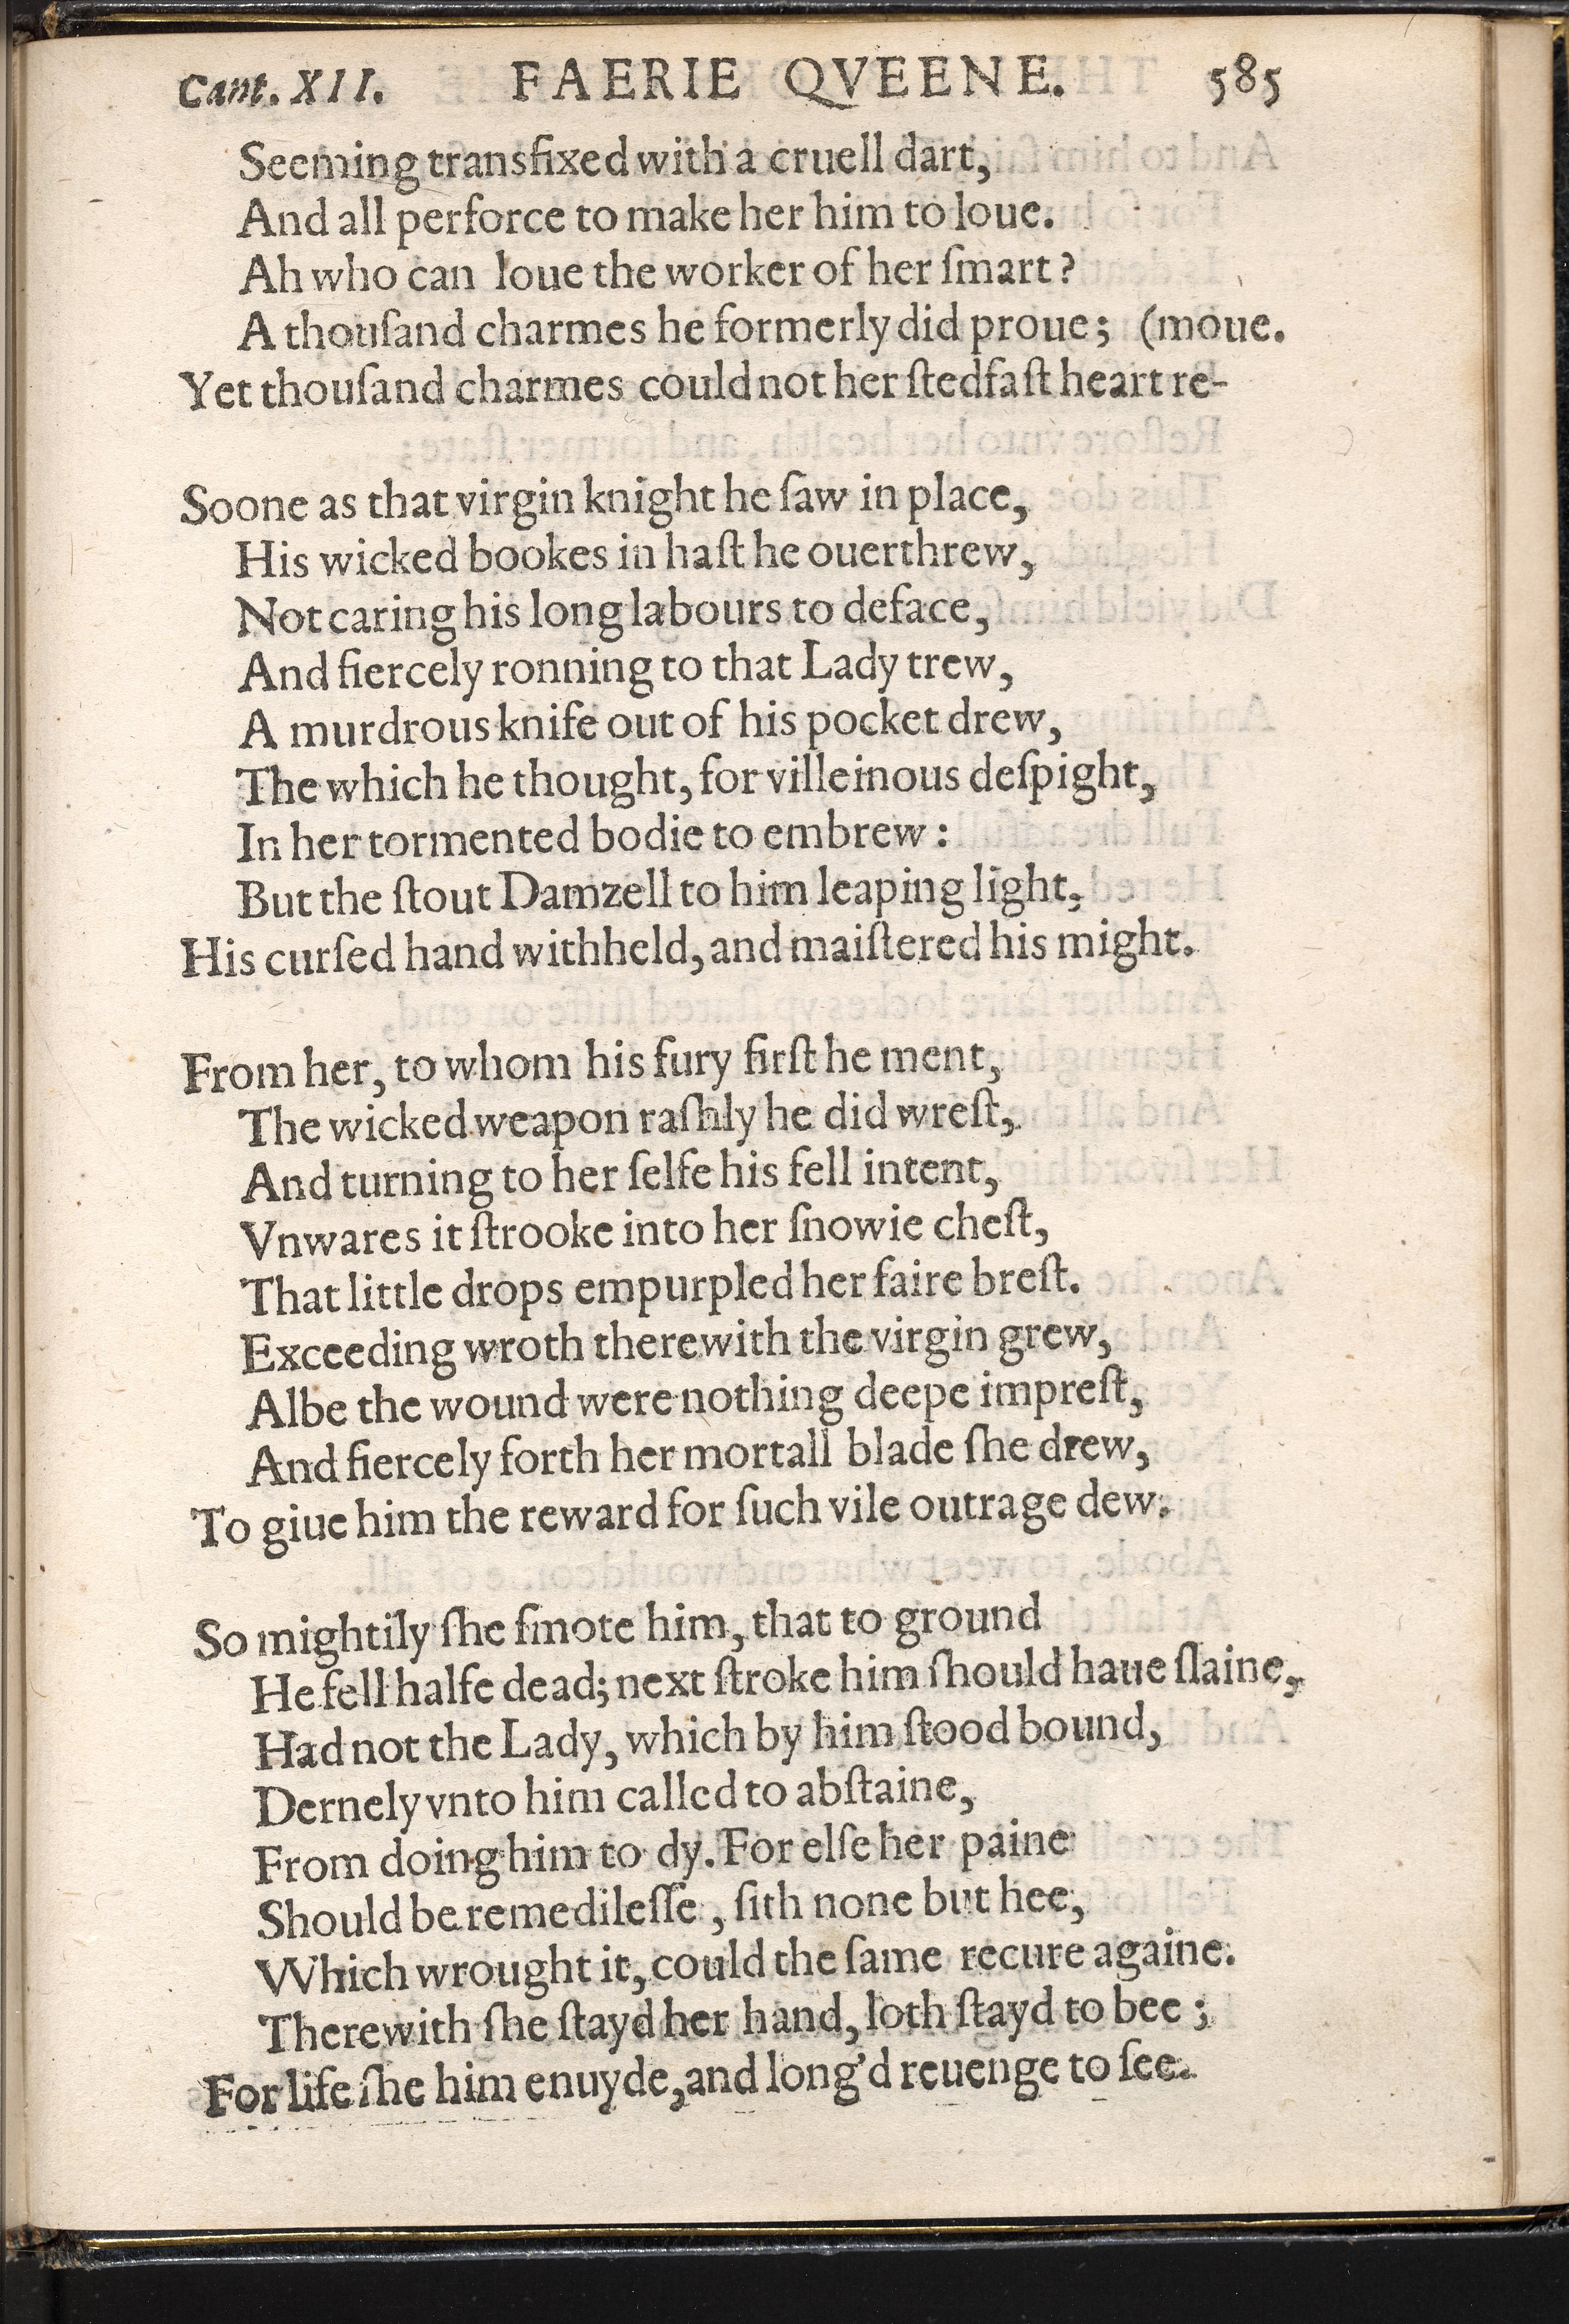 Cant. XII. FAERIE QVEENE. 585
Seeming transfixed with a cruell dart,
And all perforce to make her him to loue.
Ah who can loue the worker of her ſmart?
A thouſand charmes he formerly did proue; (moue.
Yet thouſand charmes could not her ſtedfaſt heart re-
Soone as that virgin knight he ſaw in place,
His wicked bookes in haſt he ouerthrew,
Not caring his long labours to deface,
And fiercely ronning to that Lady trew,
A murdrous knife out of his pocket drew,
The which he thought, for villeinous deſpight,
In her tormented bodie to embrew:
But the ſtout Damzell to him leaping light,
His curſed hand withheld, and maiſtered his might.
From her, to whom his fury firſt he ment,
The wicked weapon raſhly he did wreſt,
And turning to her ſelfe his fell intent,
Vnwares it ſtrooke into her ſnowie cheſt,
That little drops empurpled her faire breſt.
Exceeding wroth therewith the virgin grew,
Albe the wound were nothing deepe impreſt,
And fiercely forth her mortall blade ſhe drew,
To giue him the reward for ſuch vile outrage dew.
So mightily ſhe ſmote him, that to ground
He fell halfe dead; next ſtroke him ſhould haue ſlaine,
Had not the Lady, which by him ſtood bound,
Dernely vnto him called to abſtaine,
From doing him to dy. For elſe her paine
Should be remedileſſe, ſith none but hee,
Which wrought it, could the ſame recure againe.
Therewith ſhe ſtayd her hand, loth ſtayd to bee;
For life ſhe him enuyde, and long'd reuenge to ſee.